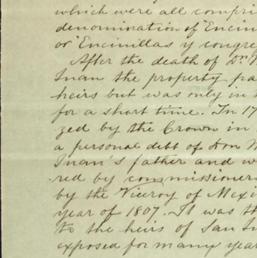 which were all compri
denomination of Encin
or Encinillas y congre
After the death of Dn
Juan the property pa
heirs but was only in
for a short time. In 17
zed by the Crown in
a personal debt of Don
Juan's father and w
red by commissioner
by the Viceroy of Mexi
year of 1807. It was th
to the heirs of San Ju
exposed for many year